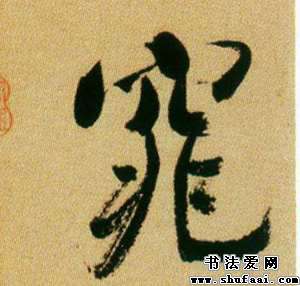 窕
书法爱网
www.shufaai.com